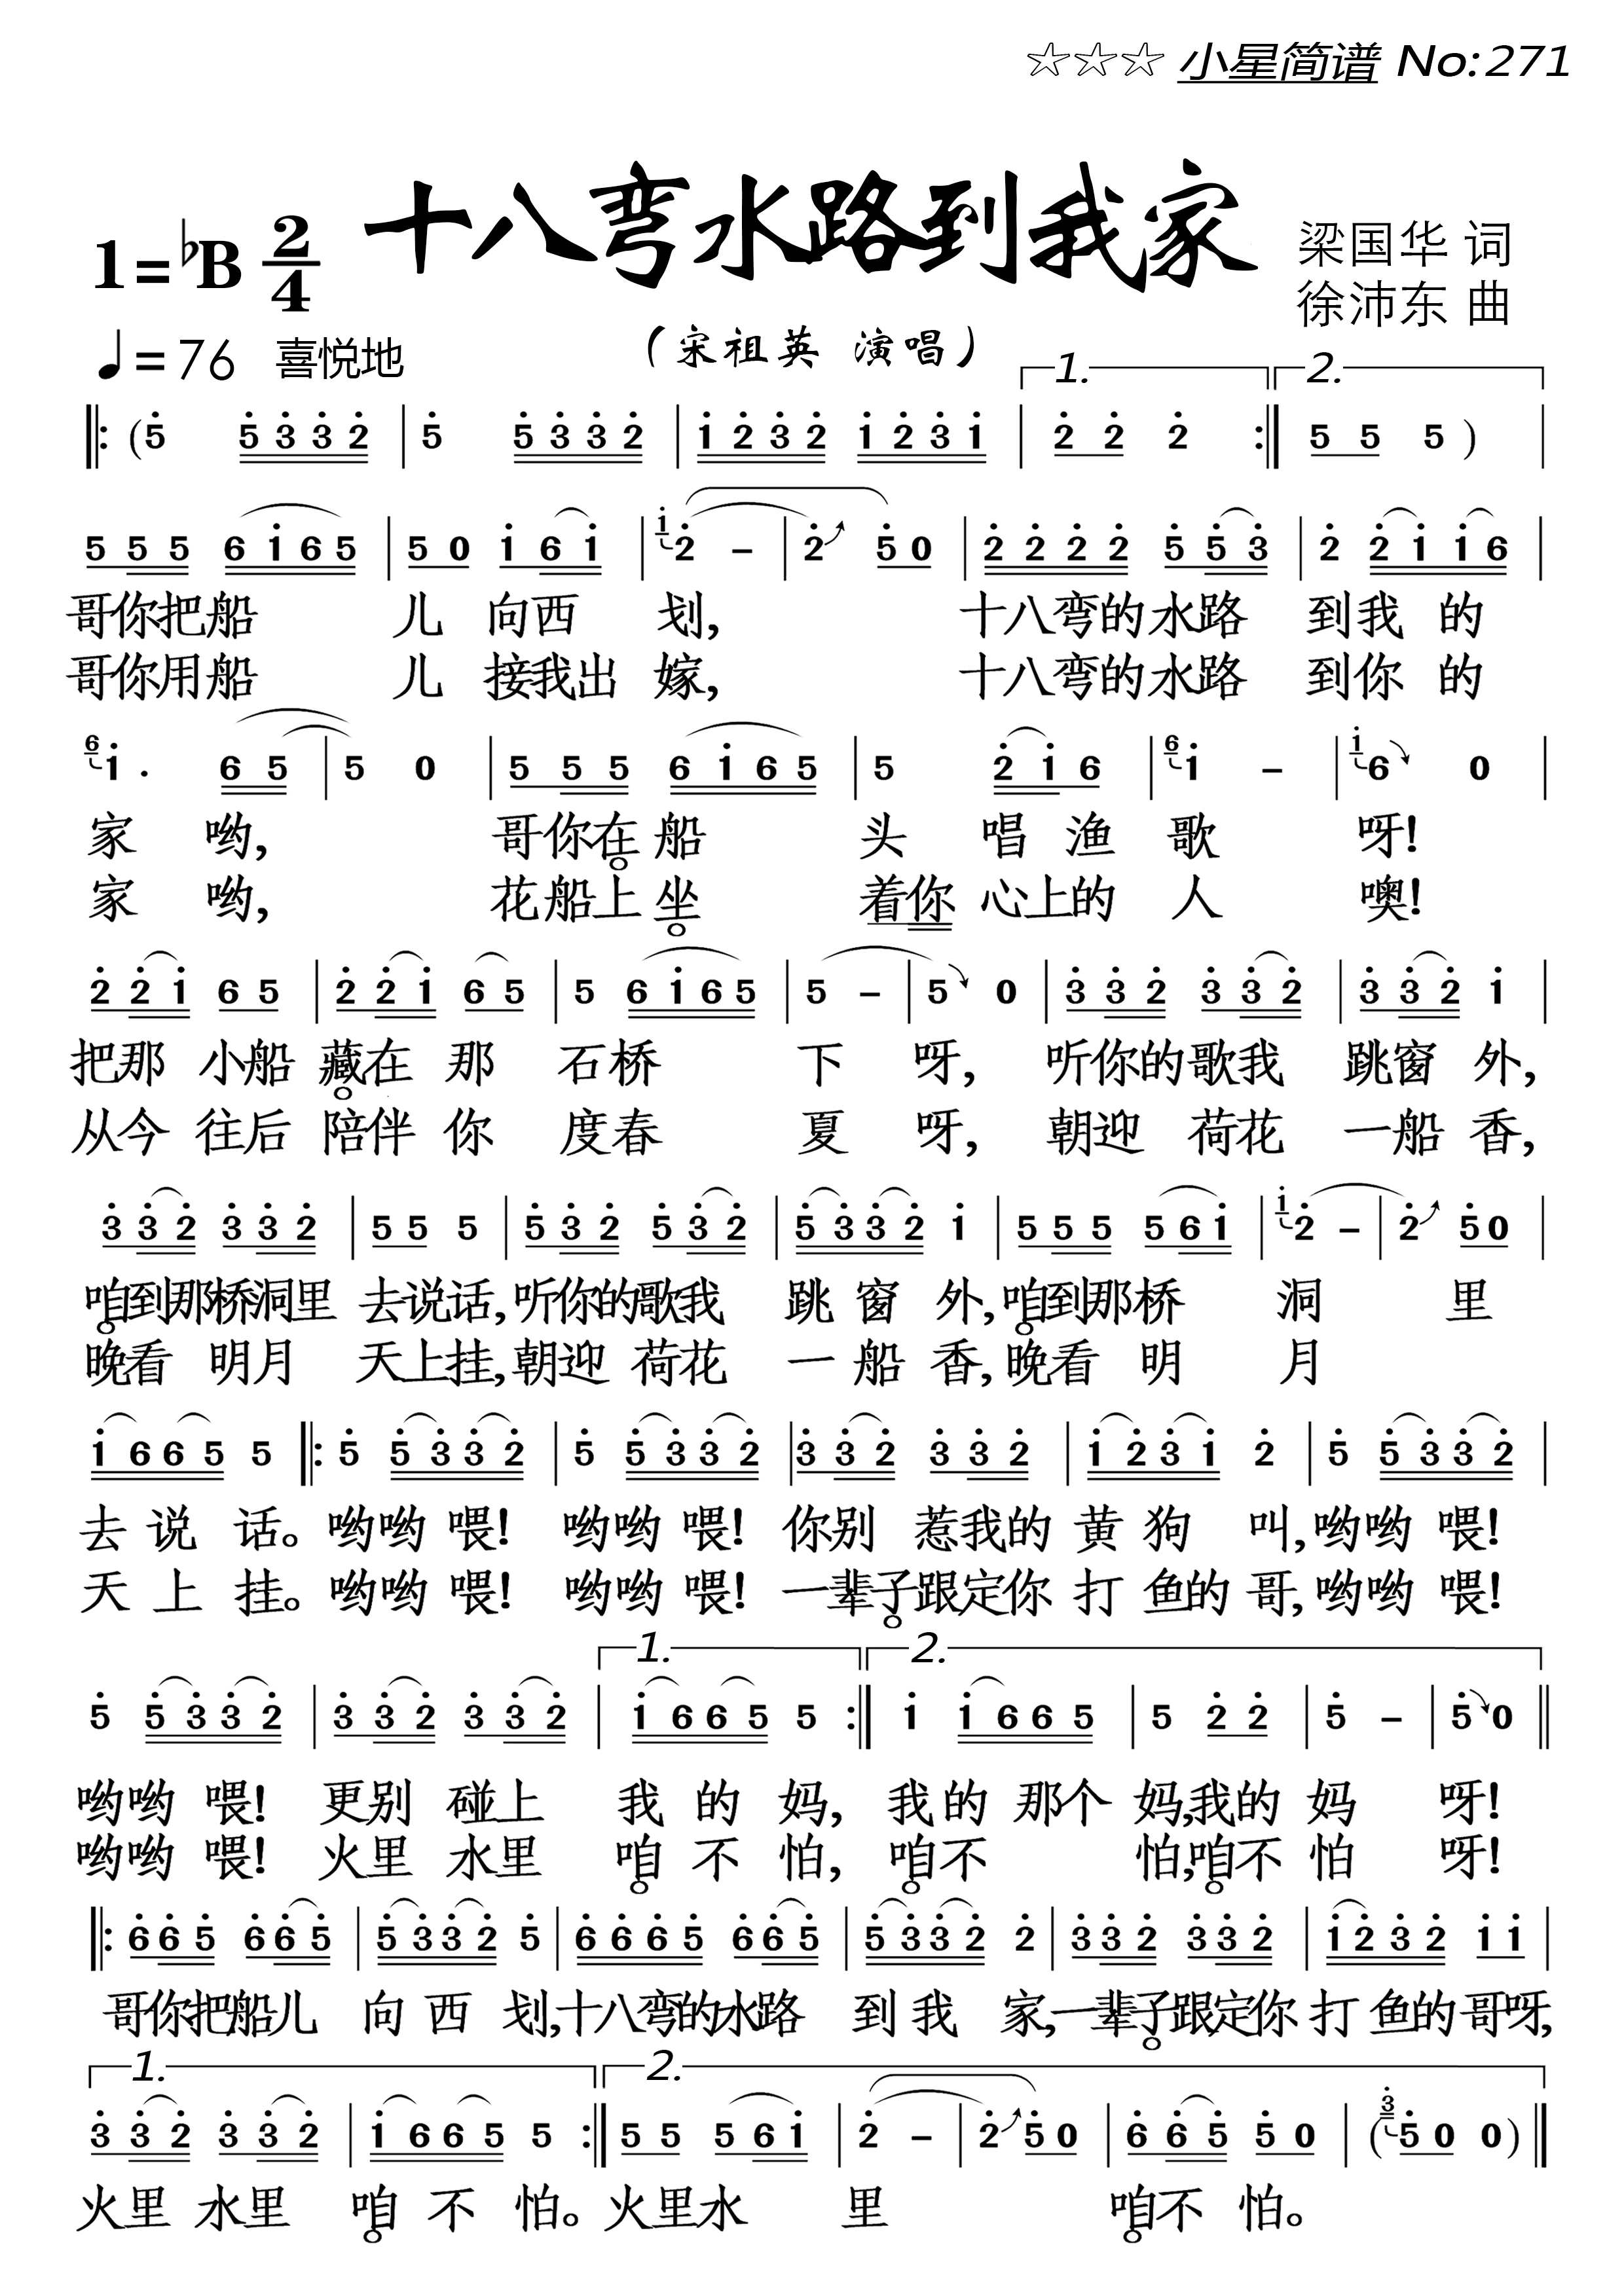 ☆☆☆ 小星简谱 No:271
十八弯水路到我家
1=♭B 2/4
梁国华 词
徐沛东 曲
♩=76 喜悦地
(宋祖英 演唱)
1. 2.
(5 5 3 3 2 | 5 5 3 3 2 | 1 2 3 2 1 2 3 1 | 2 2 2 :| 5 5 5 ) |
5 5 5 6 1 6 5 | 5 0 1 6 1 | 1 2 - | 2 5 0 | 2 2 2 2 5 5 3 | 2 2 1 1 6 |
哥你把船 儿 向西 划, 十八弯的水路 到我 的
哥你用船 儿 接我出 嫁, 十八弯的水路 到你 的
6 1 . 6 5 | 5 0 | 5 5 5 6 1 6 5 | 5 2 1 6 | 6 1 - | 1 6 0 |
家 哟, 哥你在船 头 唱 渔 歌 呀!
家 哟, 花船上坐 着你 心上的 人 噢!
2 2 1 6 5 | 2 2 1 6 5 | 5 6 1 6 5 | 5 - | 5 0 | 3 3 2 3 3 2 | 3 3 2 1 |
把那 小船 藏在 那 石桥 下 呀, 听你的歌我 跳窗 外,
从今 往后 陪伴 你 度春 夏 呀, 朝迎 荷花 一船 香,
3 3 2 3 3 2 | 5 5 5 | 5 3 2 5 3 2 | 5 3 3 2 1 | 5 5 5 5 6 1 | 1 2 - | 2 5 0 |
咱到那桥洞里 去说话,听你的歌我 跳 窗 外,咱到那桥 洞 里
晚看 明月 天上挂,朝迎 荷花 一 船 香,晚看 明 月
1 6 6 5 5 |: 5 5 3 3 2 | 5 5 3 3 2 | 3 3 2 3 3 2 | 1 2 3 1 2 | 5 5 3 3 2 |
去 说 话。哟哟 喂! 哟哟 喂! 你别 惹我的 黄 狗 叫,哟哟 喂!
天 上 挂。哟哟 喂! 哟哟 喂! 一辈子跟定你 打 鱼的 哥,哟哟 喂!
1. 2.
5 5 3 3 2 | 3 3 2 3 3 2 | 1 6 6 5 5 :| 1 1 6 6 5 | 5 2 2 | 5 - | 5 0 ||
哟哟 喂! 更别 碰上 我 的 妈, 我的 那个 妈,我的 妈 呀!
哟哟 喂! 火里 水里 咱 不 怕, 咱不 怕,咱不 怕 呀!
|: 6 6 5 6 6 5 | 5 3 3 2 5 | 6 6 6 5 6 6 5 | 5 3 3 2 2 | 3 3 2 3 3 2 | 1 2 3 2 1 1 |
哥你把船儿 向 西 划,十八弯的水路 到 我 家,一辈子跟定你 打 鱼的 哥呀,
1. 2.
3 3 2 3 3 2 | 1 6 6 5 5 :| 5 5 5 6 1 | 2 - | 2 5 0 | 6 6 5 5 0 | ( 3 5 0 0 ) ||
火里 水里 咱 不 怕。火里水 里 咱不 怕。